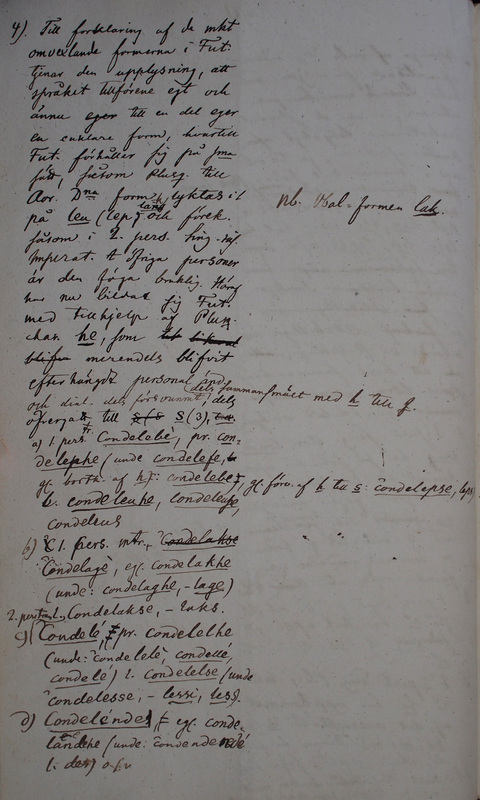 4). Till förklaring af de mkt
omvexlande formerna i Fut.
tjenar den upplysning, att
språket tillförene egt och
ännu eger till en del eger
en enklare form, hvartill
Fut. förhåller sig på sma
sätt, såsom Plusq. till
Aor. Dna form lyktas
på leu (lep) och förek.
såsom i 2. pers. Sing.
Imperat. I öfriga personer
är den föga bruklig. Häraf
har nu bildat sig Fut.
med tillhjelp af Plusq.
char. he, som
blifvit merendels blifvit
efterhängdt personal änd.
och dial. dels försvunnit, dels sammansmält med h till f.
öfvergått till s (3),
a) 1. pers. Condelebé, pr. con-
delephe (unde condelefe,
gt. bortk. af h): condelebe, gt. förv. af h till s: condelepse,
b. condeleuhe, condeleuse,
condeleus
b) 1. pers. intr. Condelakse
Condelagé, eg. condelakhe
(unde: condelaghe, -lage)
2. pers. Condelakse, - laks.
c) Condelé, pr. condelelhe
(unde: condelelé, condellé,
condelé) l. condelelse (unde
condelesse, - lessi, less).
d) Condeléndel eg. conde-
(unde: condende
Nb. Val-formen lak.